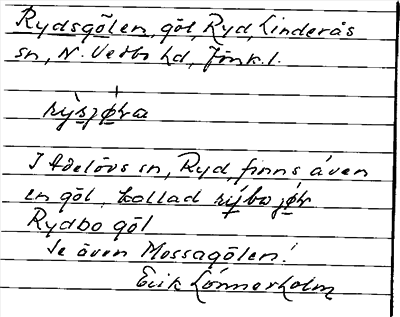 Rydsgölen, göl, Ryd, Linderås
sn, N. Vedbo hd, Jönk. l.
rỳsjø̀ḷa
I Adelövs sn, Ryd, finns även
en göl kallad rýbojø̣̀ḷ
Rydbo göl
Se även Mossagölen!
Erik Lönnerholm